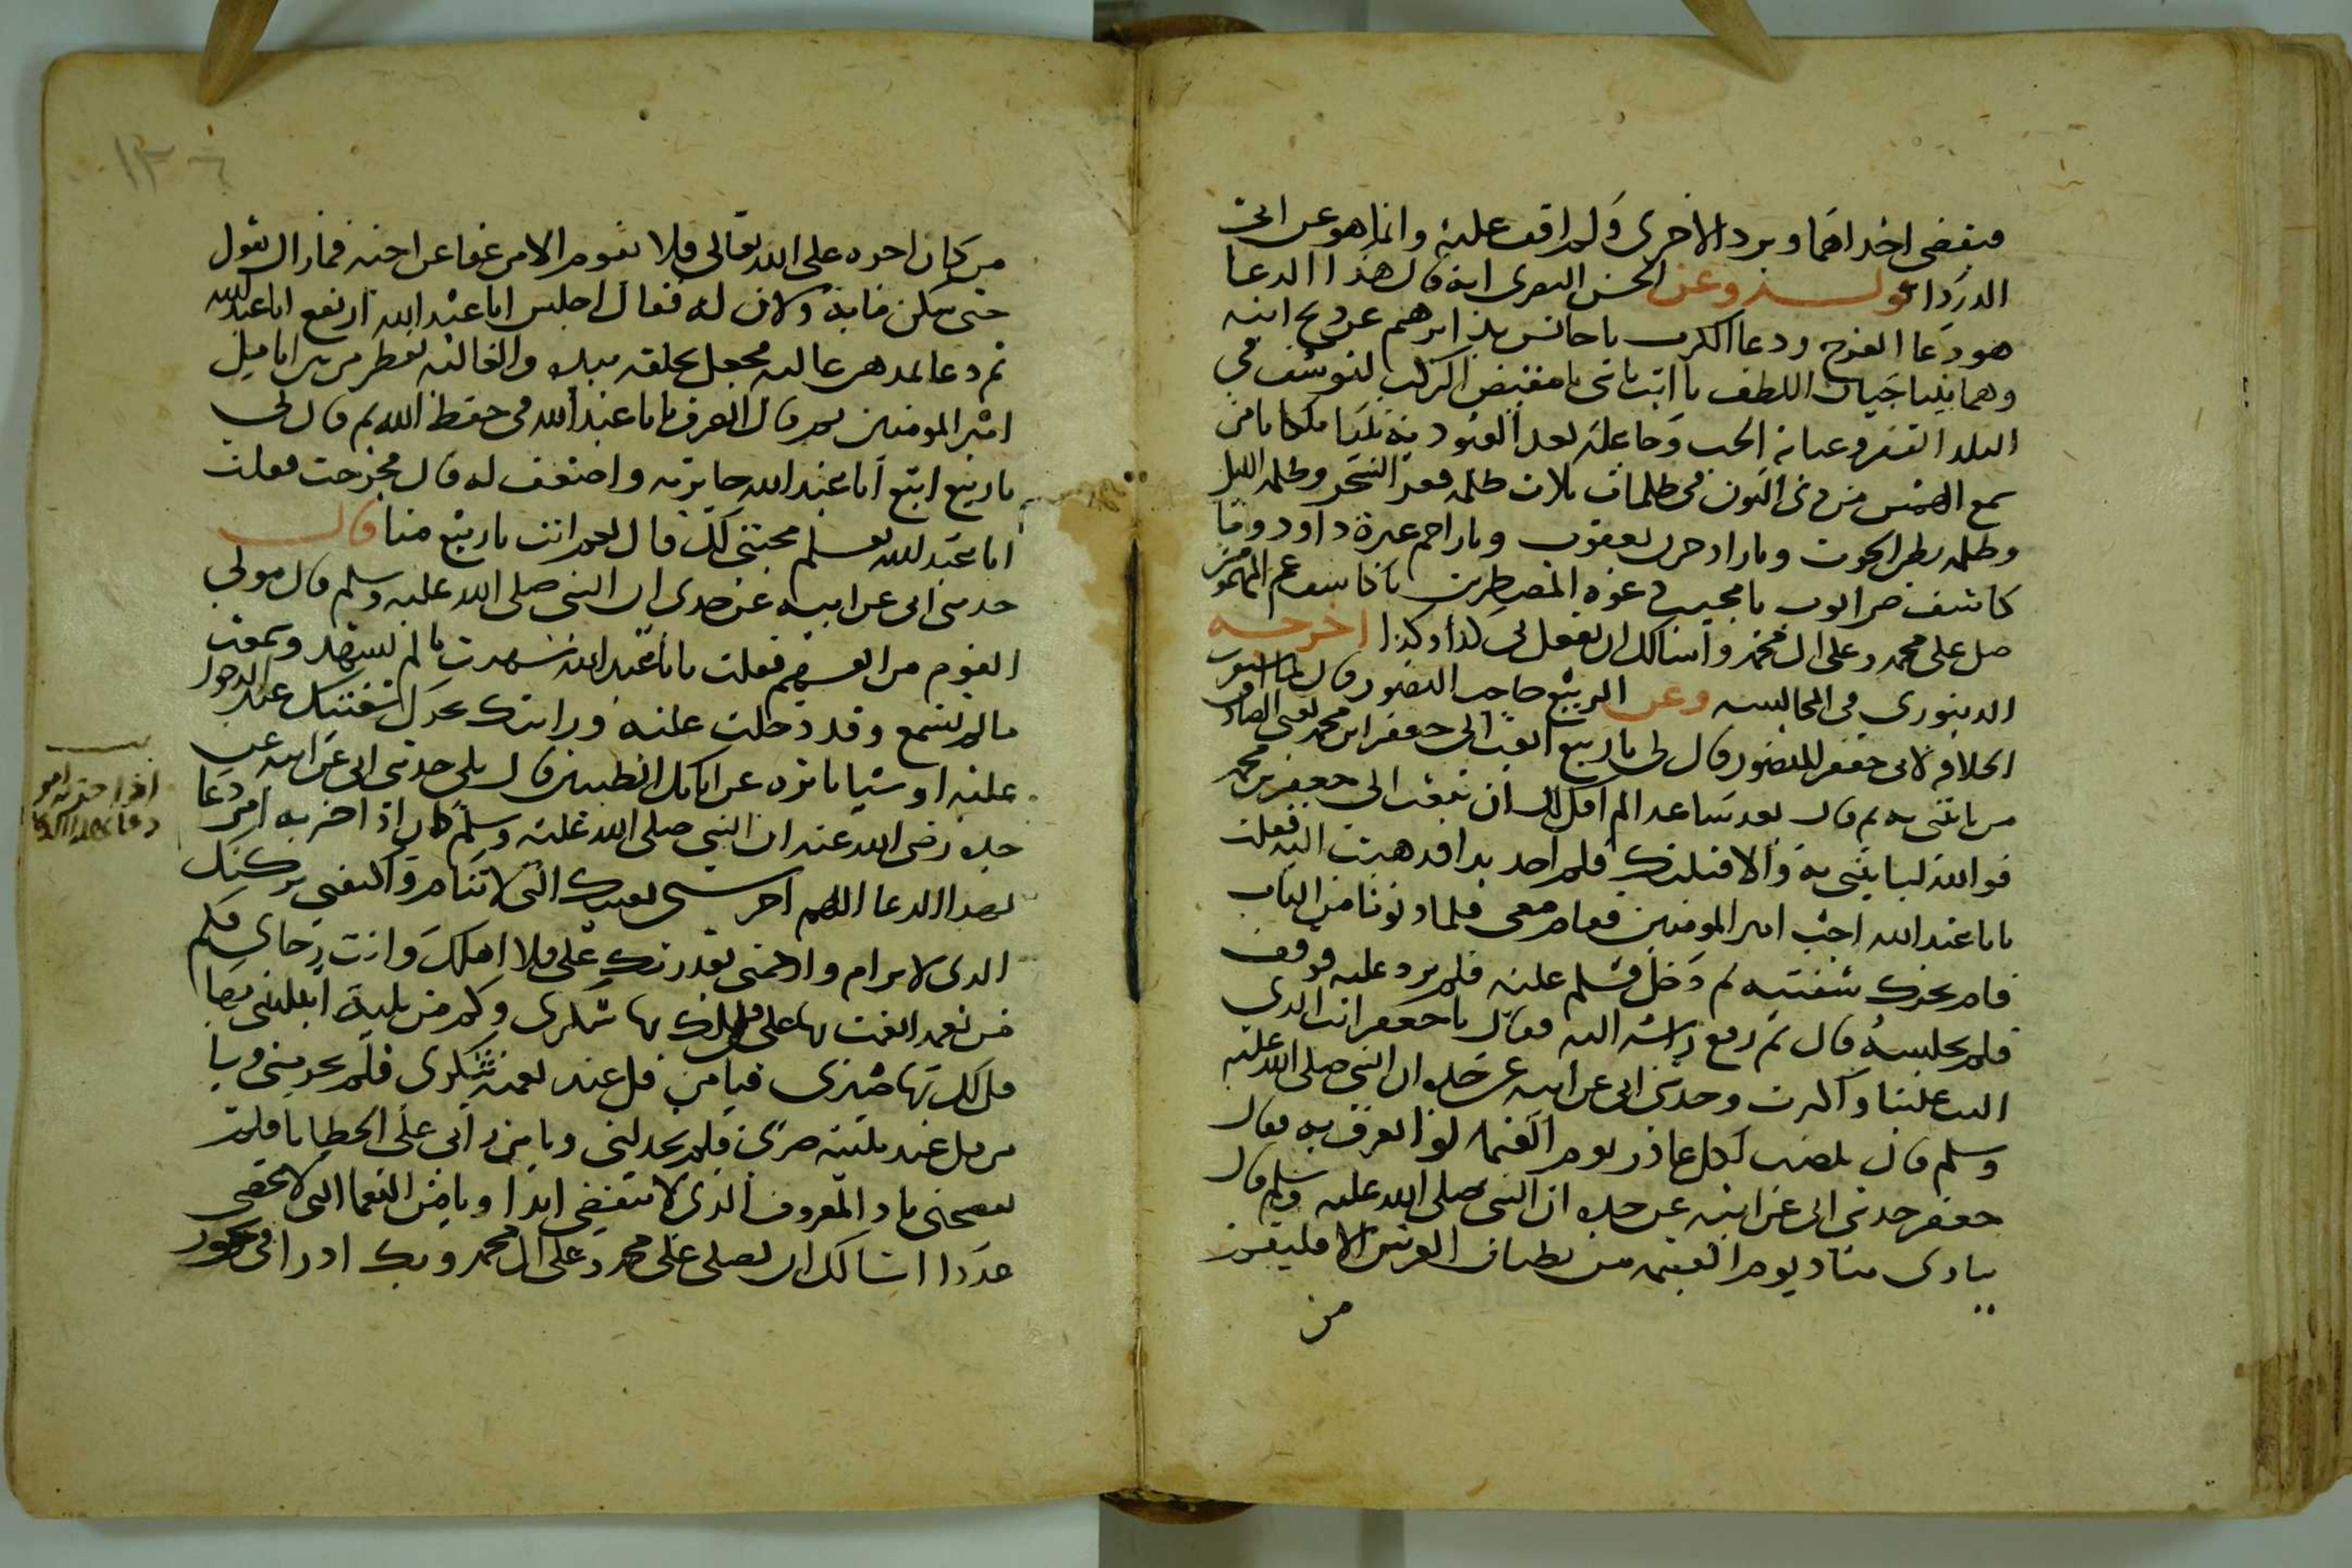 فيقضي احداهما ويرد الاخرى ولم اقف عليه وانما هو عن ابي
الدرداء وعن الحسن البصري انه قال هذا الدعا
هو دعا الفرج ودعا الكرب يا حابس يد ابرهيم عن ذبح ابنه
وهما يتناجيان اللطف يا ابت يا بني يا مقيض الركب ليوسف في
البلد القفر وغيابة الجب وجاعله بعد العبودية نبيا ملكا يا من
سمع الهمس من ذي النون في ظلمات ثلاث ظلمة قعر البحر وظلمة الليل
وظلمة بطن الحوت ويا راد حزن يعقوب ويا راحم عبرة داود ويا
كاشف ضر ايوب يا مجيب دعوة المضطرين يا كاشف غم المهمومين
صل على محمد وعلى ال محمد واسالك ان تفعل لي كذا وكذا اخرجه
الدينوري في المجالسة وعن الربيع حاجب المنصور قال لما استوت
الخلافة لابي جعفر المنصور قال لي يا ربيع ابعث الى جعفر ابن محمد يعني الصادق
من ياتيني به ثم قال بعد ساعة الم اقل لك ان تبعث الى جعفر بن محمد
فوالله لياتيني به والا قتلتك فلم اجد بدا فذهبت اليه فقلت
يا ابا عبد الله اجب امير المومنين فقام معي فلما دنونا من الباب
قام يحرك شفتيه ثم دخل فسلم عليه فلم يرد عليه فوقف
فلم يجلسه قال ثم رفع راسه اليه فقال يا جعفر انت الذي
البت علينا واكثرت وحدثني ابي عن ابيه عن جده ان النبي صلى الله عليه
وسلم قال ينصب لكل غادر يوم القيمة لوا يعرف به فقال
جعفر حدثني ابي عن ابيه عن جده ان النبي صلى الله عليه وسلم قال
ينادي مناد يوم القيمة من بطنان العرش الا فليقم
من
من كان اجره على الله تعالى فلا يقوم الا من عفا عن اخيه فما زال يقول
حتى سكن ما به ولان له فقال اجلس ابا عبد الله ارتفع ابا عبد الله
ثم دعا بمدهن غالية فجعل يخلقه بيده والغالية تقطر من بين انامل
امير المومنين ثم قال انصرف ابا عبد الله في حفظ الله ثم قال لي
يا ربيع اتبع ابا عبد الله جايزته واضعف له قال فخرجت فقلت
ابا عبد الله تعلم محبتي لك قال نعم انت يا ربيع منا قال
حدثني ابي عن ابيه عن جدي ان النبي صلى الله عليه وسلم قال مولى
القوم من انفسهم فقلت يا ابا عبد الله شهدت ما لم تشهد وسمعت
ما لم تسمع وقد دخلت عليه ورايتك تحرك شفتيك عند الدخول
عليه او شيا تاثره عن ابايك الطيبين قال بلى حدثني ابي عن ابيه عن
جده رضي الله عنه ان النبي صلى الله عليه وسلم كان اذا حزبه امر دعا
بهذا الدعا اللهم احرسني بعينك التي لا تنام واكنفني بركنك
الذي لا يرام وارحمني بقدرتك علي فلا اهلك وانت رجاي فكم
من نعمة انعمت بها علي قل لك بها شكري وكم من بلية ابتليتني بها
قل لك بها صبري فيا من قل عند نعمته شكري فلم يحرمني ويا
من قل عند بليته صبري فلم يخذلني ويا من راني على الخطايا فلم
يفضحني يا ذا المعروف الذي لا ينقضي ابدا ويا ذا النعما التي لا تحصى
عددا اسالك ان تصلي على محمد وعلى ال محمد وبك ادرا في نحور